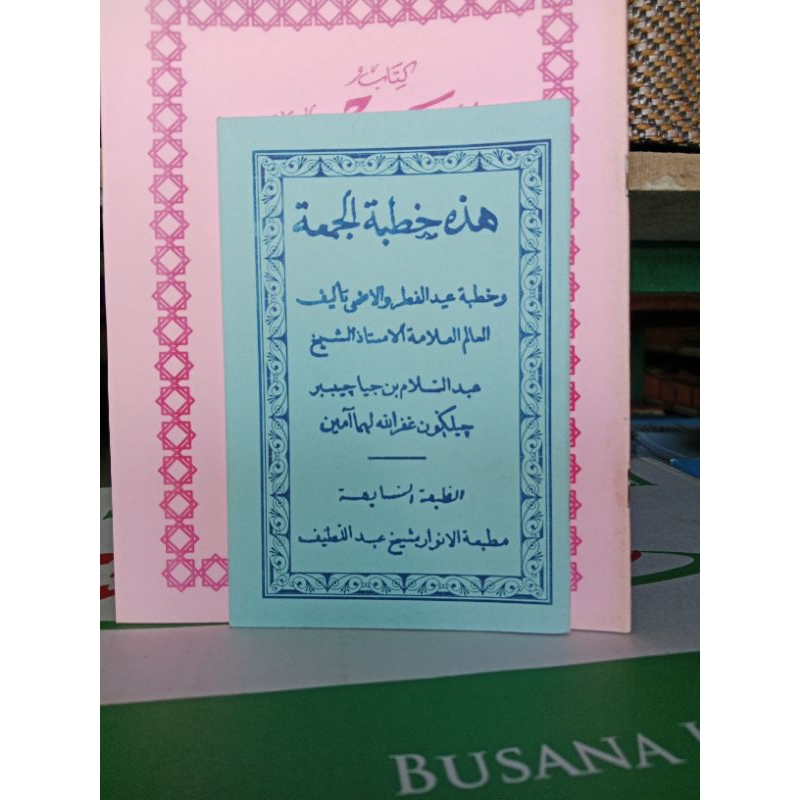 كتاب
هذه خطبة الجمعة
وخطبة عيد الفطر والاضحى تأليف
العالم العلامة الاستاذ الشيخ
عبد السلام بن جيا چيبير
چيلڬون غفر الله لهما آمين
الطبعة السابعة
مطبعة الانوار بشيخ عبد اللطيف
BUSANA